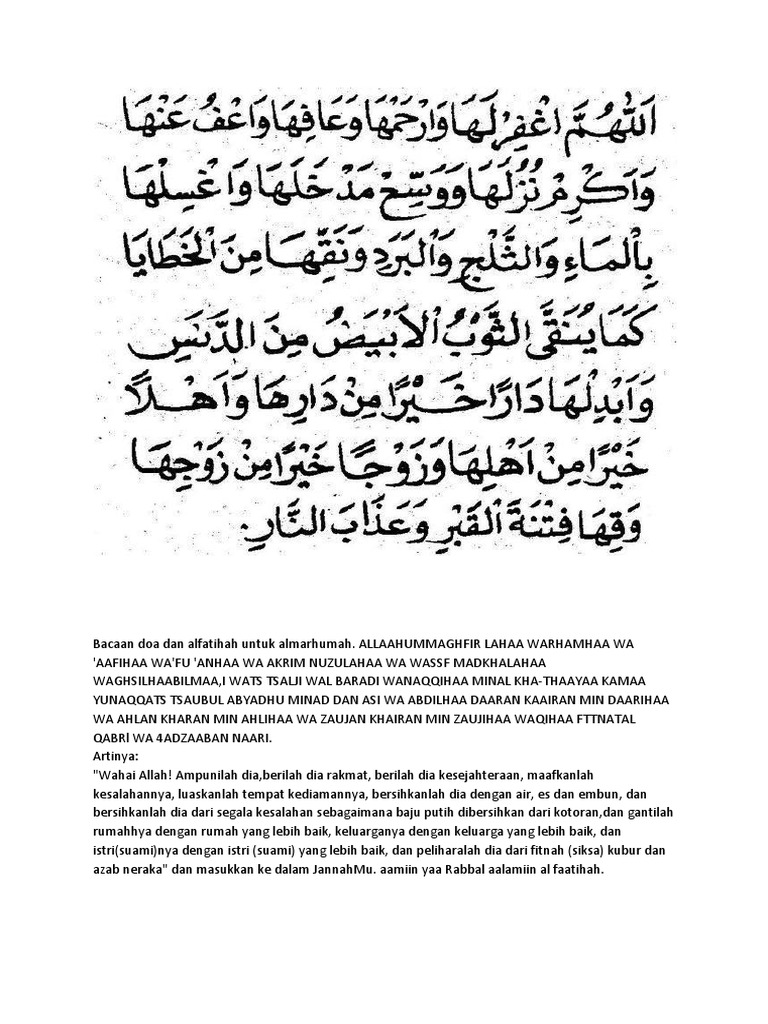 اَللّٰهُمَّ اغْفِرْلَهَا وَارْحَمْهَا وَعَافِهَا وَاعْفُ عَنْهَا
وَاَكْرِمْ نُزُلَهَا وَوَسِّعْ مَدْخَلَهَا وَاغْسِلْهَا
بِالْمَاءِ وَالثَّلْجِ وَالْبَرَدِ وَنَقِّهَا مِنَ الْخَطَايَا
كَمَا يُنَقَّى الثَّوْبُ الْاَبْيَضُ مِنَ الدَّنَسِ
وَاَبْدِلْهَا دَارًا خَيْرًا مِنْ دَارِهَا وَاَهْلًا
خَيْرًا مِنْ اَهْلِهَا وَزَوْجًا خَيْرًا مِنْ زَوْجِهَا
وَقِهَا فِتْنَةَ الْقَبْرِ وَعَذَابَ النَّارِ.
Bacaan doa dan alfatihah untuk almarhumah. ALLAAHUMMAGHFIR LAHAA WARHAMHAA WA
'AAFIHAA WA'FU 'ANHAA WA AKRIM NUZULAHAA WA WASSF MADKHALAHAA
WAGHSILHAABILMAA,I WATS TSALJI WAL BARADI WANAQQIHAA MINAL KHA-THAAYAA KAMAA
YUNAQQATS TSAUBUL ABYADHU MINAD DAN ASI WA ABDILHAA DAARAN KAAIRAN MIN DAARIHAA
WA AHLAN KHARAN MIN AHLIHAA WA ZAUJAN KHAIRAN MIN ZAUJIHAA WAQIHAA FTTNATAL
QABRl WA 4ADZAABAN NAARI.
Artinya:
"Wahai Allah! Ampunilah dia,berilah dia rakmat, berilah dia kesejahteraan, maafkanlah
kesalahannya, luaskanlah tempat kediamannya, bersihkanlah dia dengan air, es dan embun, dan
bersihkanlah dia dari segala kesalahan sebagaimana baju putih dibersihkan dari kotoran,dan gantilah
rumahhya dengan rumah yang lebih baik, keluarganya dengan keluarga yang lebih baik, dan
istri(suami)nya dengan istri (suami) yang lebih baik, dan peliharalah dia dari fitnah (siksa) kubur dan
azab neraka" dan masukkan ke dalam JannahMu. aamiin yaa Rabbal aalamiin al faatihah.